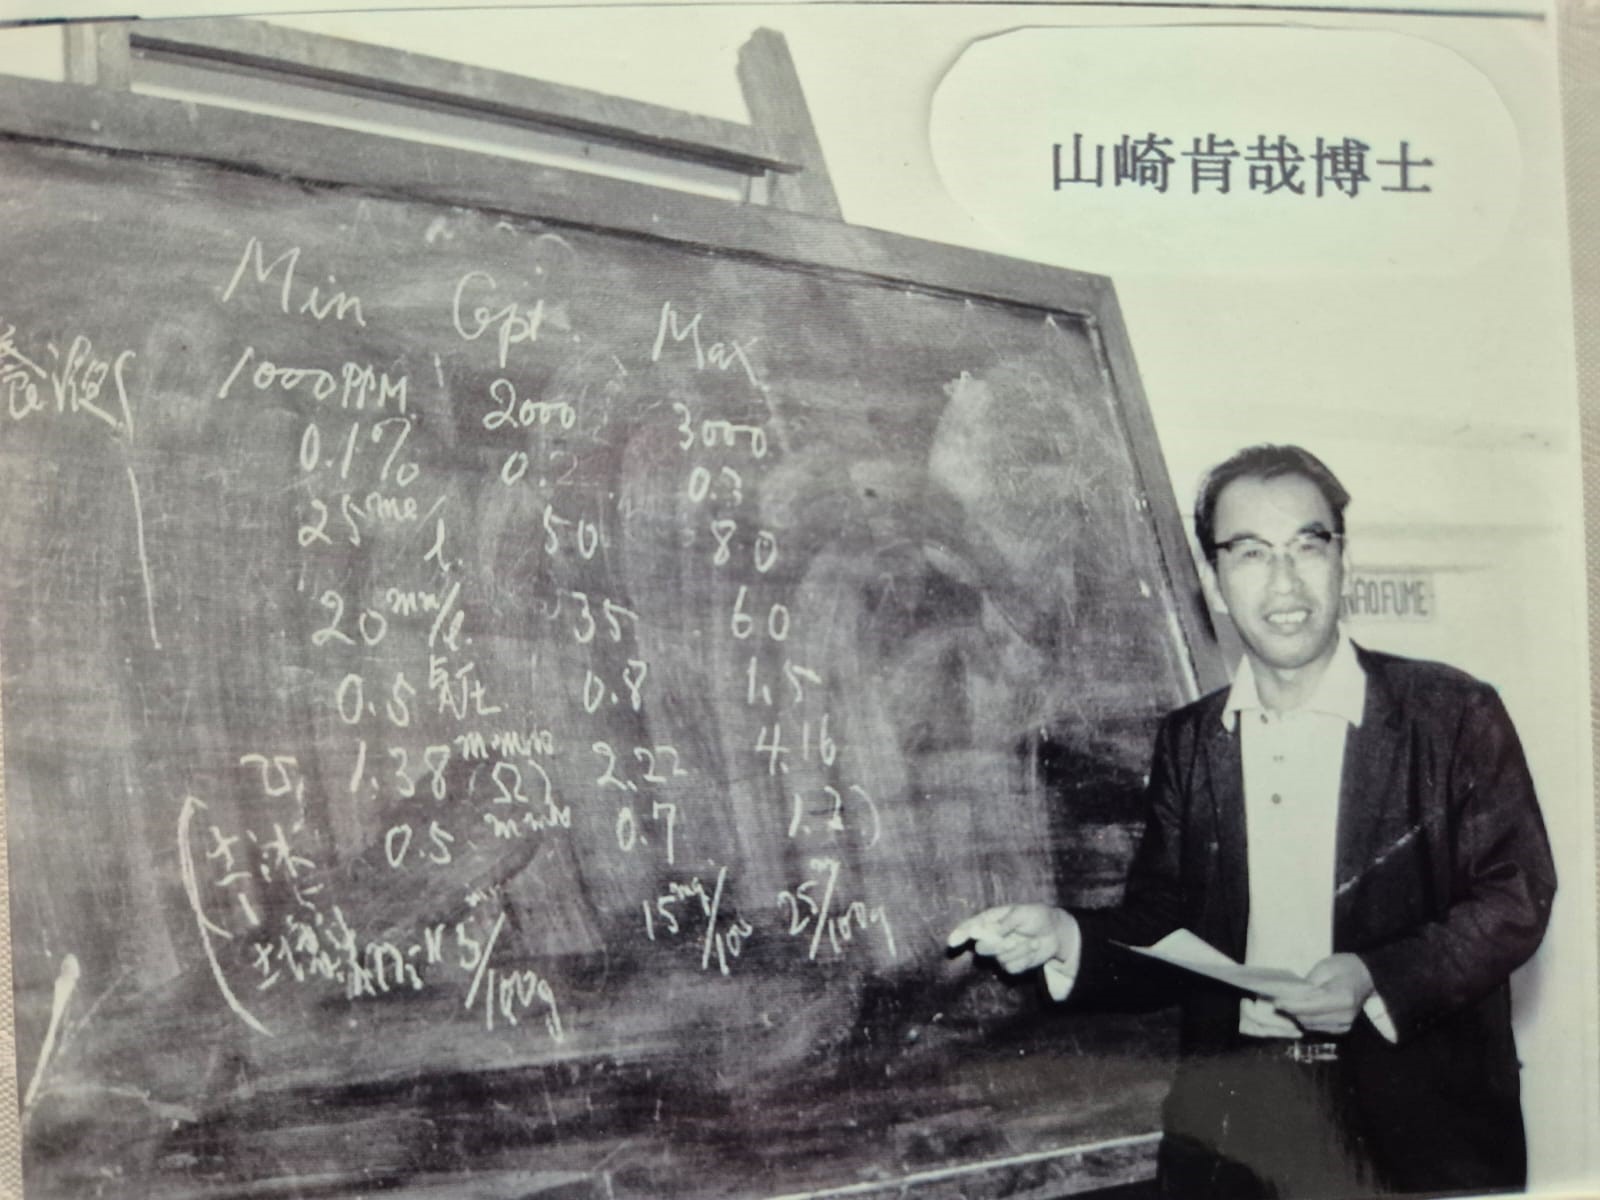 山崎肯哉博士
Min Opt. Max
養液 1000PPM 2000 3000
0.1% 0.2 0.3
25me/l. 50 80
20mM/l. 35 60
0.5気圧 0.8 1.5
1.38 m-mho (Ω) 2.22 4.16
土 0.5 m-mho 0.7 1.2)
N 5mg/100g 15mg/100 25mg/100g
NÃO FUME